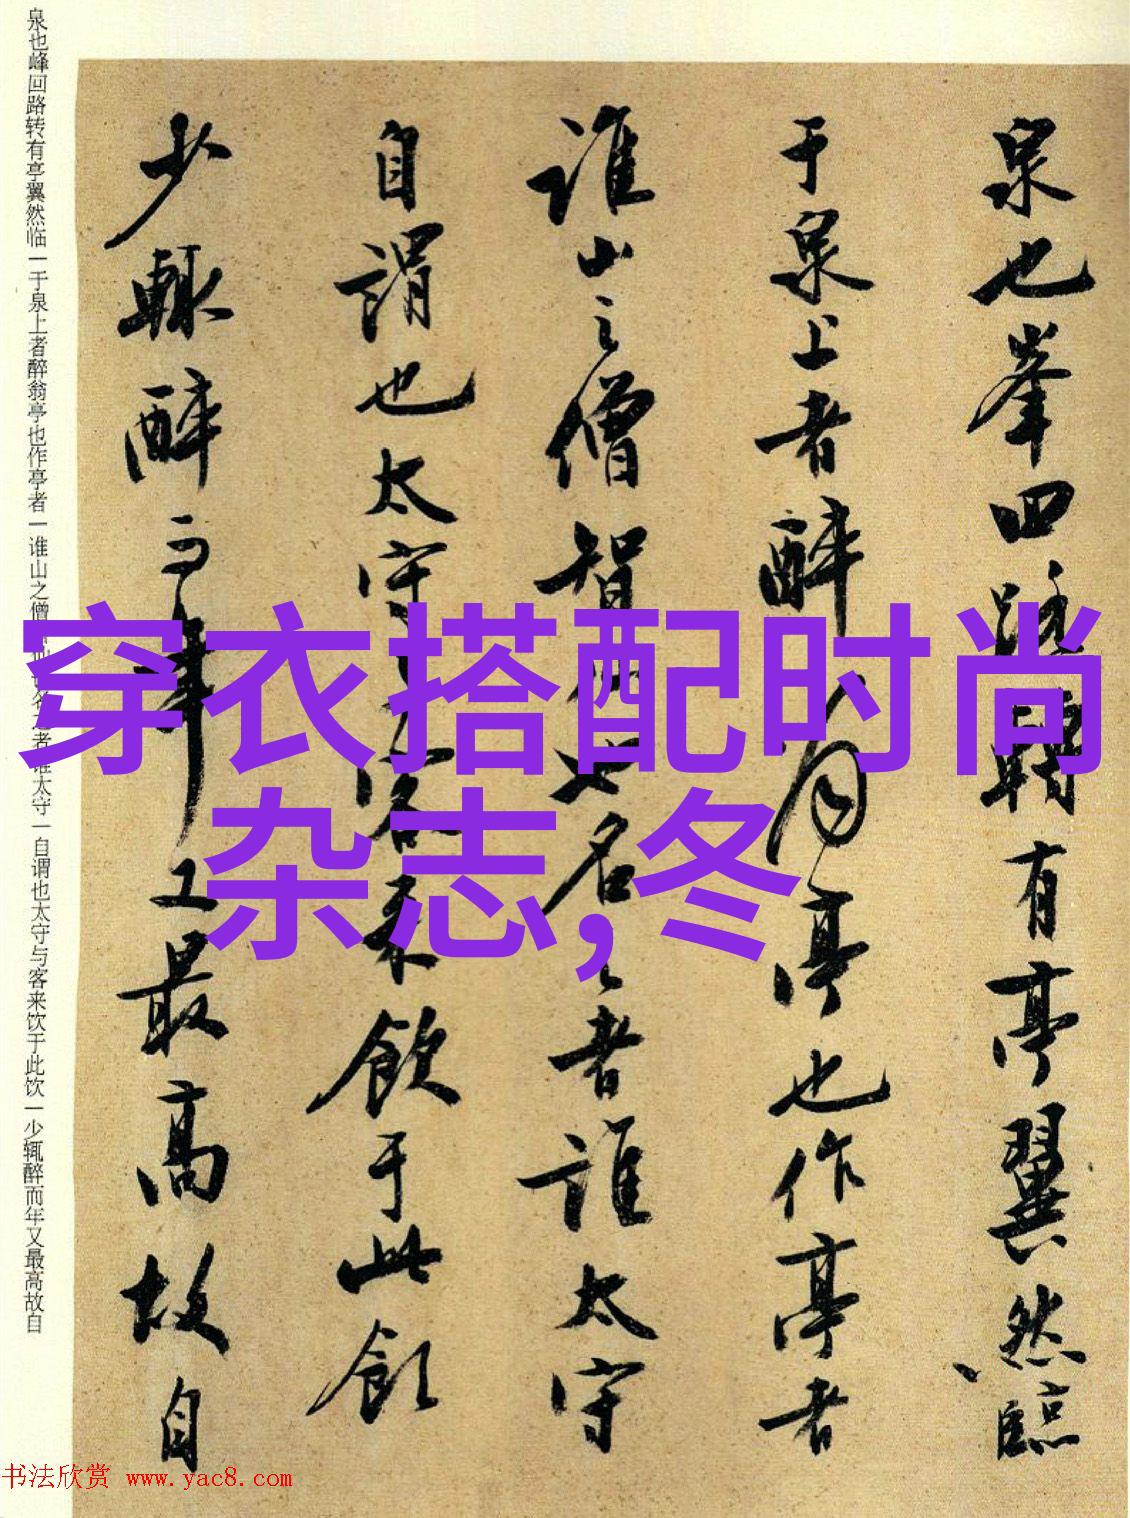 泉也峯回路轉有亭翼然臨
于泉上者醉翁亭也作亭者
誰山之僧智僊也名之者誰太守
自謂也太守與客來飲于此飲
少輒醉而年又最高故自
泉也峰回路转有亭翼然临一于泉上者醉翁亭也作亭者一谁山之僧名之者谁太守一自谓也太守与客来饮于此饮一少辄醉而年又最高故自
穿衣搭配时尚
杂志,冬
书法欣赏 www.yac8.com